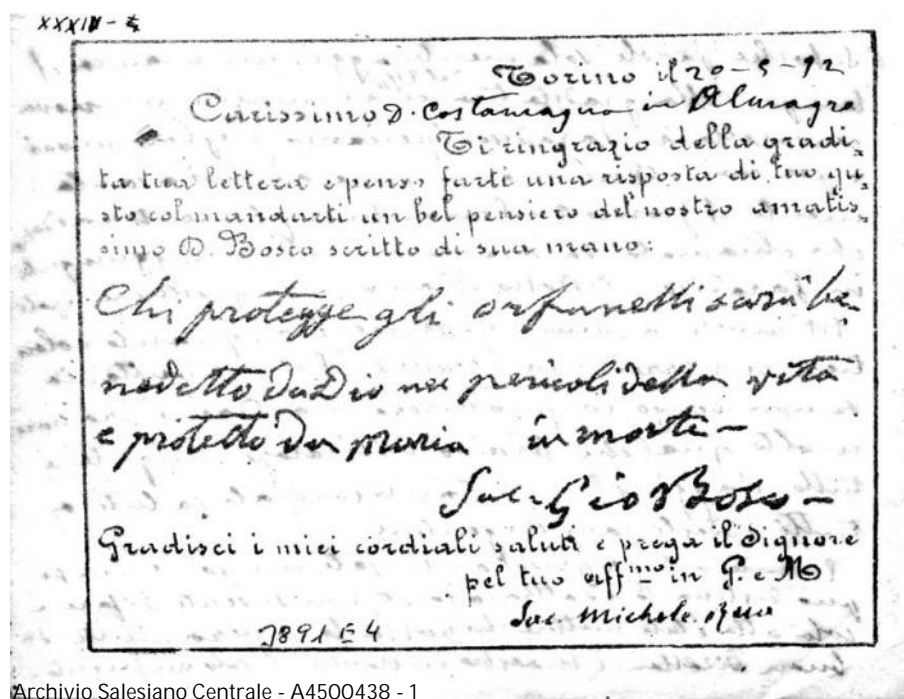 Torino il 20-5-92
Carissimo D. Costamagna in Almagro
Ti ringrazio della gradi=
ta tua lettera e penso farti una risposta di tuo gu=
sto col mandarti un bel pensiero del nostro amatis=
simo D. Bosco scritto di sua mano:
Chi protegge gli orfanelli sarà be=
nedetto da Dio nei pericoli della vita
e protetto da Maria in morte -
Sac. Gio Bosco -
Gradisci i miei cordiali saluti e prega il Signore
pel tuo aff.mo in G. e M
Sac. Michele Rua
3891 E 4
Archivio Salesiano Centrale - A4500438 - 1